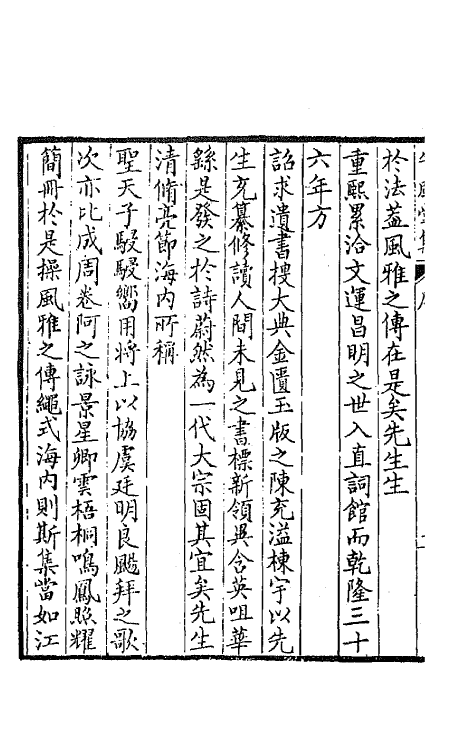 於法葢風雅之傳在是矣先生生
重熙累洽文運昌明之世入直詞館而乾隆三十
六年方
詔求遺書搜大典金匱玉版之陳充溢棟宇以先
生充纂修讀人間未見之書標新領異含英咀華
繇是發之於詩蔚然為一代大宗固其宜矣先生
清脩亮節海内所稱
聖天子駸駸嚮用將上以協虞廷明良颺拜之歌
次亦比成周卷阿之詠景星卿雲梧桐鳴鳳照耀
簡冊於是操風雅之傳繩式海内則斯集當如江